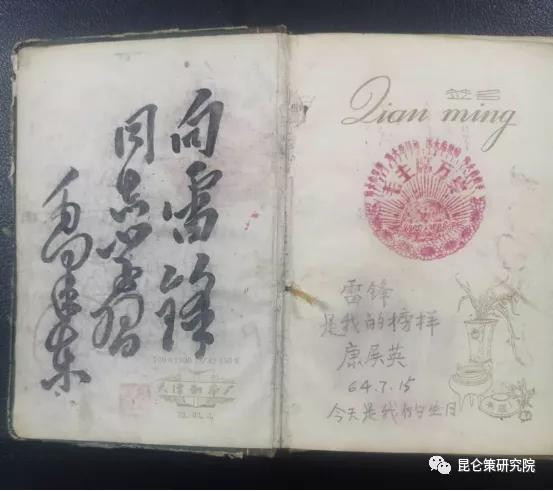 向雷锋
同志学习
毛泽东
天津制本厂
签名
Qian ming
毛主席万岁
雷锋
是我的榜样
康展英
64.7.15
今天是我的生日
昆仑策研究院